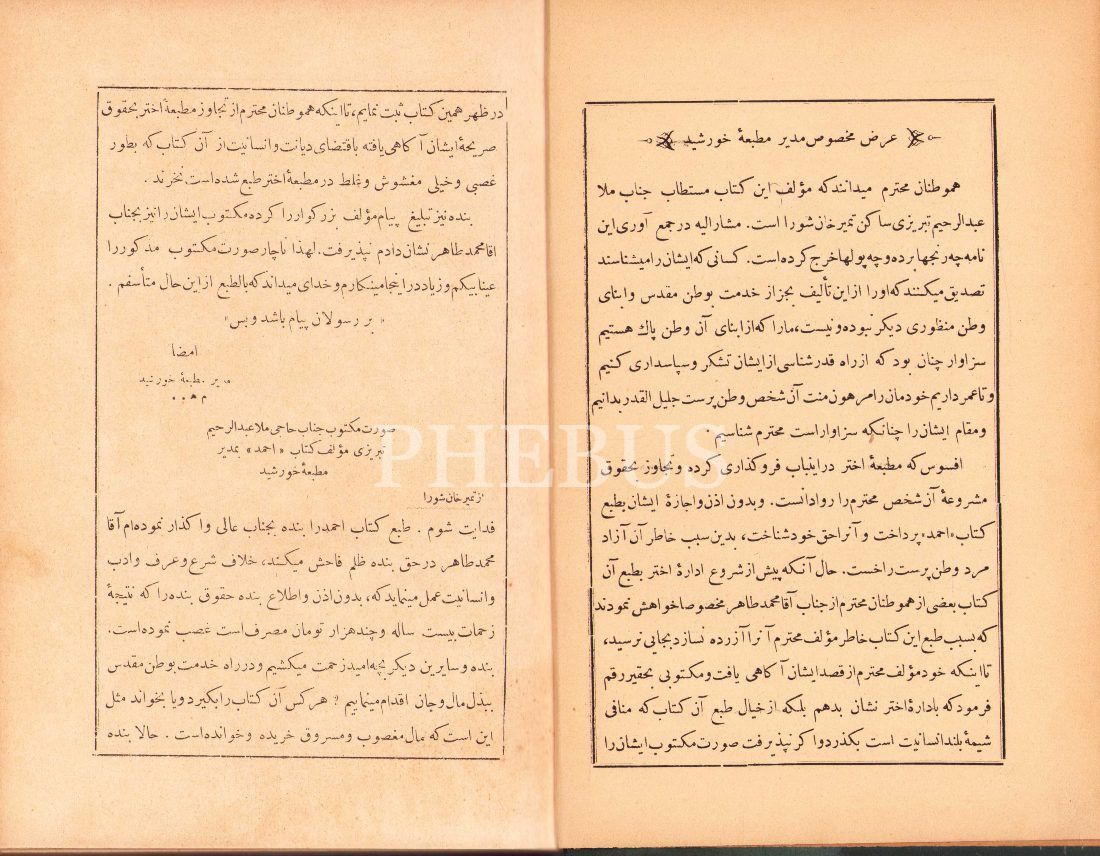 عرض مخصوص مدیر مطبعهٔ خورشید
هموطنان محترم میدانند که مؤلف این کتاب مستطاب جناب ملا
عبدالرحیم تبریزی ساکن تمیرخان شورا است. مشارالیه در جمع آوری این
نامه چه رنجها برده و چه پولها خرج کرده است. کسانی که ایشان را میشناسند
تصدیق میکنند که اورا از این تألیف بجز از خدمت بوطن مقدس و ابنای
وطن منظوری دیگر نبوده و نیست، مارا که از ابنای آن وطن پاك هستیم
سزاوار چنان بود که ازراه قدرشناسی از ایشان تشکر و سپاسداری کنیم
و تا عمر داریم خودمان را مرهون منت آن شخص وطن پرست جلیل القدر بدانیم
و مقام ایشان را چنانکه سزاوار است محترم شناسیم.
افسوس که مطبعهٔ اختر دراینباب فروگذاری کرده و تجاوز بحقوق
مشروعهٔ آن شخص محترم را روا دانست. و بدون اذن و اجازهٔ ایشان بطبع
کتاب «احمد» پرداخت و آنرا حق خود شناخت، بدین سبب خاطر آن آزاد
مرد وطن پرست را خست. حال آنکه پیش از شروع ادارهٔ اختر بطبع آن
کتاب بعضی از هموطنان محترم از جناب آقا محمد طاهر مخصوصا خواهش نمودند
که بسبب طبع این کتاب خاطر مؤلف محترم آنرا آزرده نسازد بجایی نرسید،
تا اینکه خود مؤلف محترم از قصد ایشان آگاهی یافت و مکتوبی بحقیر رقم
فرمود که بادارهٔ اختر نشان بدهم بلکه از خیال طبع آن کتاب که منافی
شیمهٔ بلند انسانیت است بگذرد و اگر نپذیرفت صورت مکتوب ایشان را
در ظهر همین کتاب ثبت نمایم، تا اینکه هموطنان محترم از تجاوز مطبعهٔ اختر بحقوق
صریحهٔ ایشان آگاهی یافته باقتضای دیانت و انسانیت از آن کتاب که بطور
غصبی و خیلی مغشوش و غلط در مطبعهٔ اختر طبع شده است نخرند.
بنده نیز تبلیغ پیام مؤلف بزرگوار را کرده مکتوب ایشان را نیز بجناب
اقا محمد طاهر نشان دادم نپذیرفت. لهذا ناچار صورت مکتوب مذکور را
عینا بیکم و زیاد در اینجا مینگارم و خدای میداند که بالطبع از این حال متأسفم.
«بر رسولان پیام باشد و بس»
امضا
مدیر مطبعهٔ خورشید
صورت مکتوب جناب حاجی ملا عبدالرحیم
تبریزی مؤلف کتاب «احمد» بمدیر
مطبعهٔ خورشید
از تمیرخان شورا
فدایت شوم. طبع کتاب احمد را بنده بجناب عالی واگذار نموده ام آقا
محمد طاهر در حق بنده ظلم فاحش میکند، خلاف شرع و عرف و ادب
و انسانیت عمل مینماید که، بدون اذن و اطلاع بنده حقوق بنده را که نتیجهٔ
زحمات بیست ساله و چند هزار تومان مصرف است غصب نموده است.
بنده و سایرین دیگر بچه امید زحمت میکشیم و در راه خدمت بوطن مقدس
ببذل مال و جان اقدام مینماییم؟ هر کس آن کتاب را بگیرد و یا بخواند مثل
این است که مال مغصوب و مسروق خریده و خوانده است. حالا بنده
PHEBUS